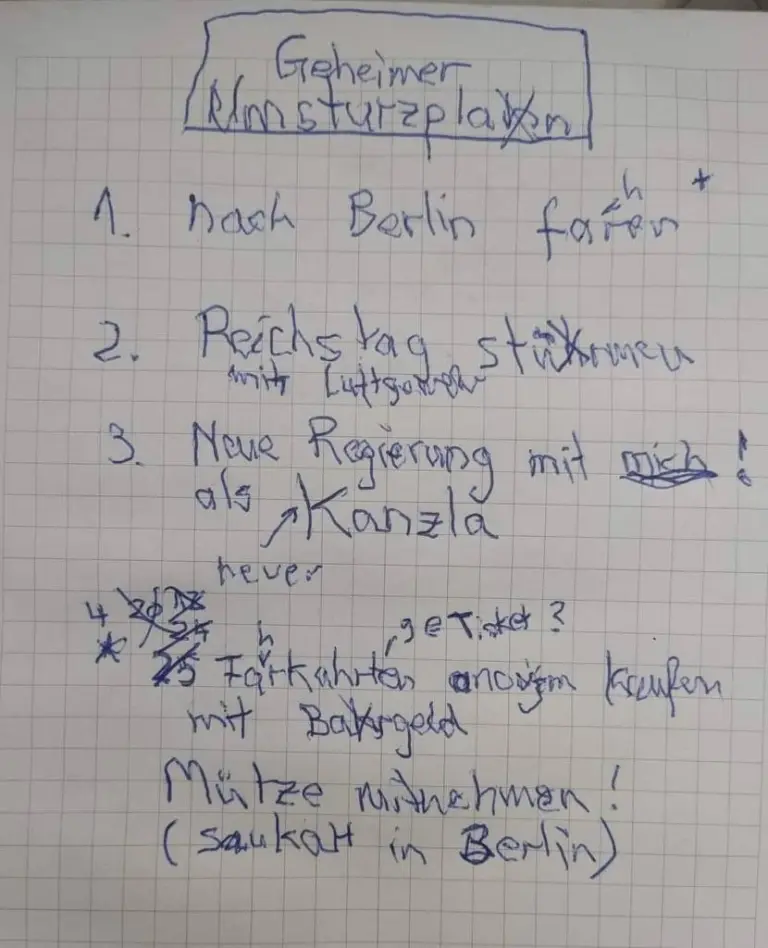 Geheimer
Umsturzplan
1. nach Berlin fahren *
2. Reichstag stürmen
mit Luftgewehr
3. Neue Regierung mit mich!
als Kanzla
neuer
4
* Fahrkahrten anonym kaufen
, 9 € Ticket?
mit Bargeld
Mütze mitnehmen!
(saukalt in Berlin)